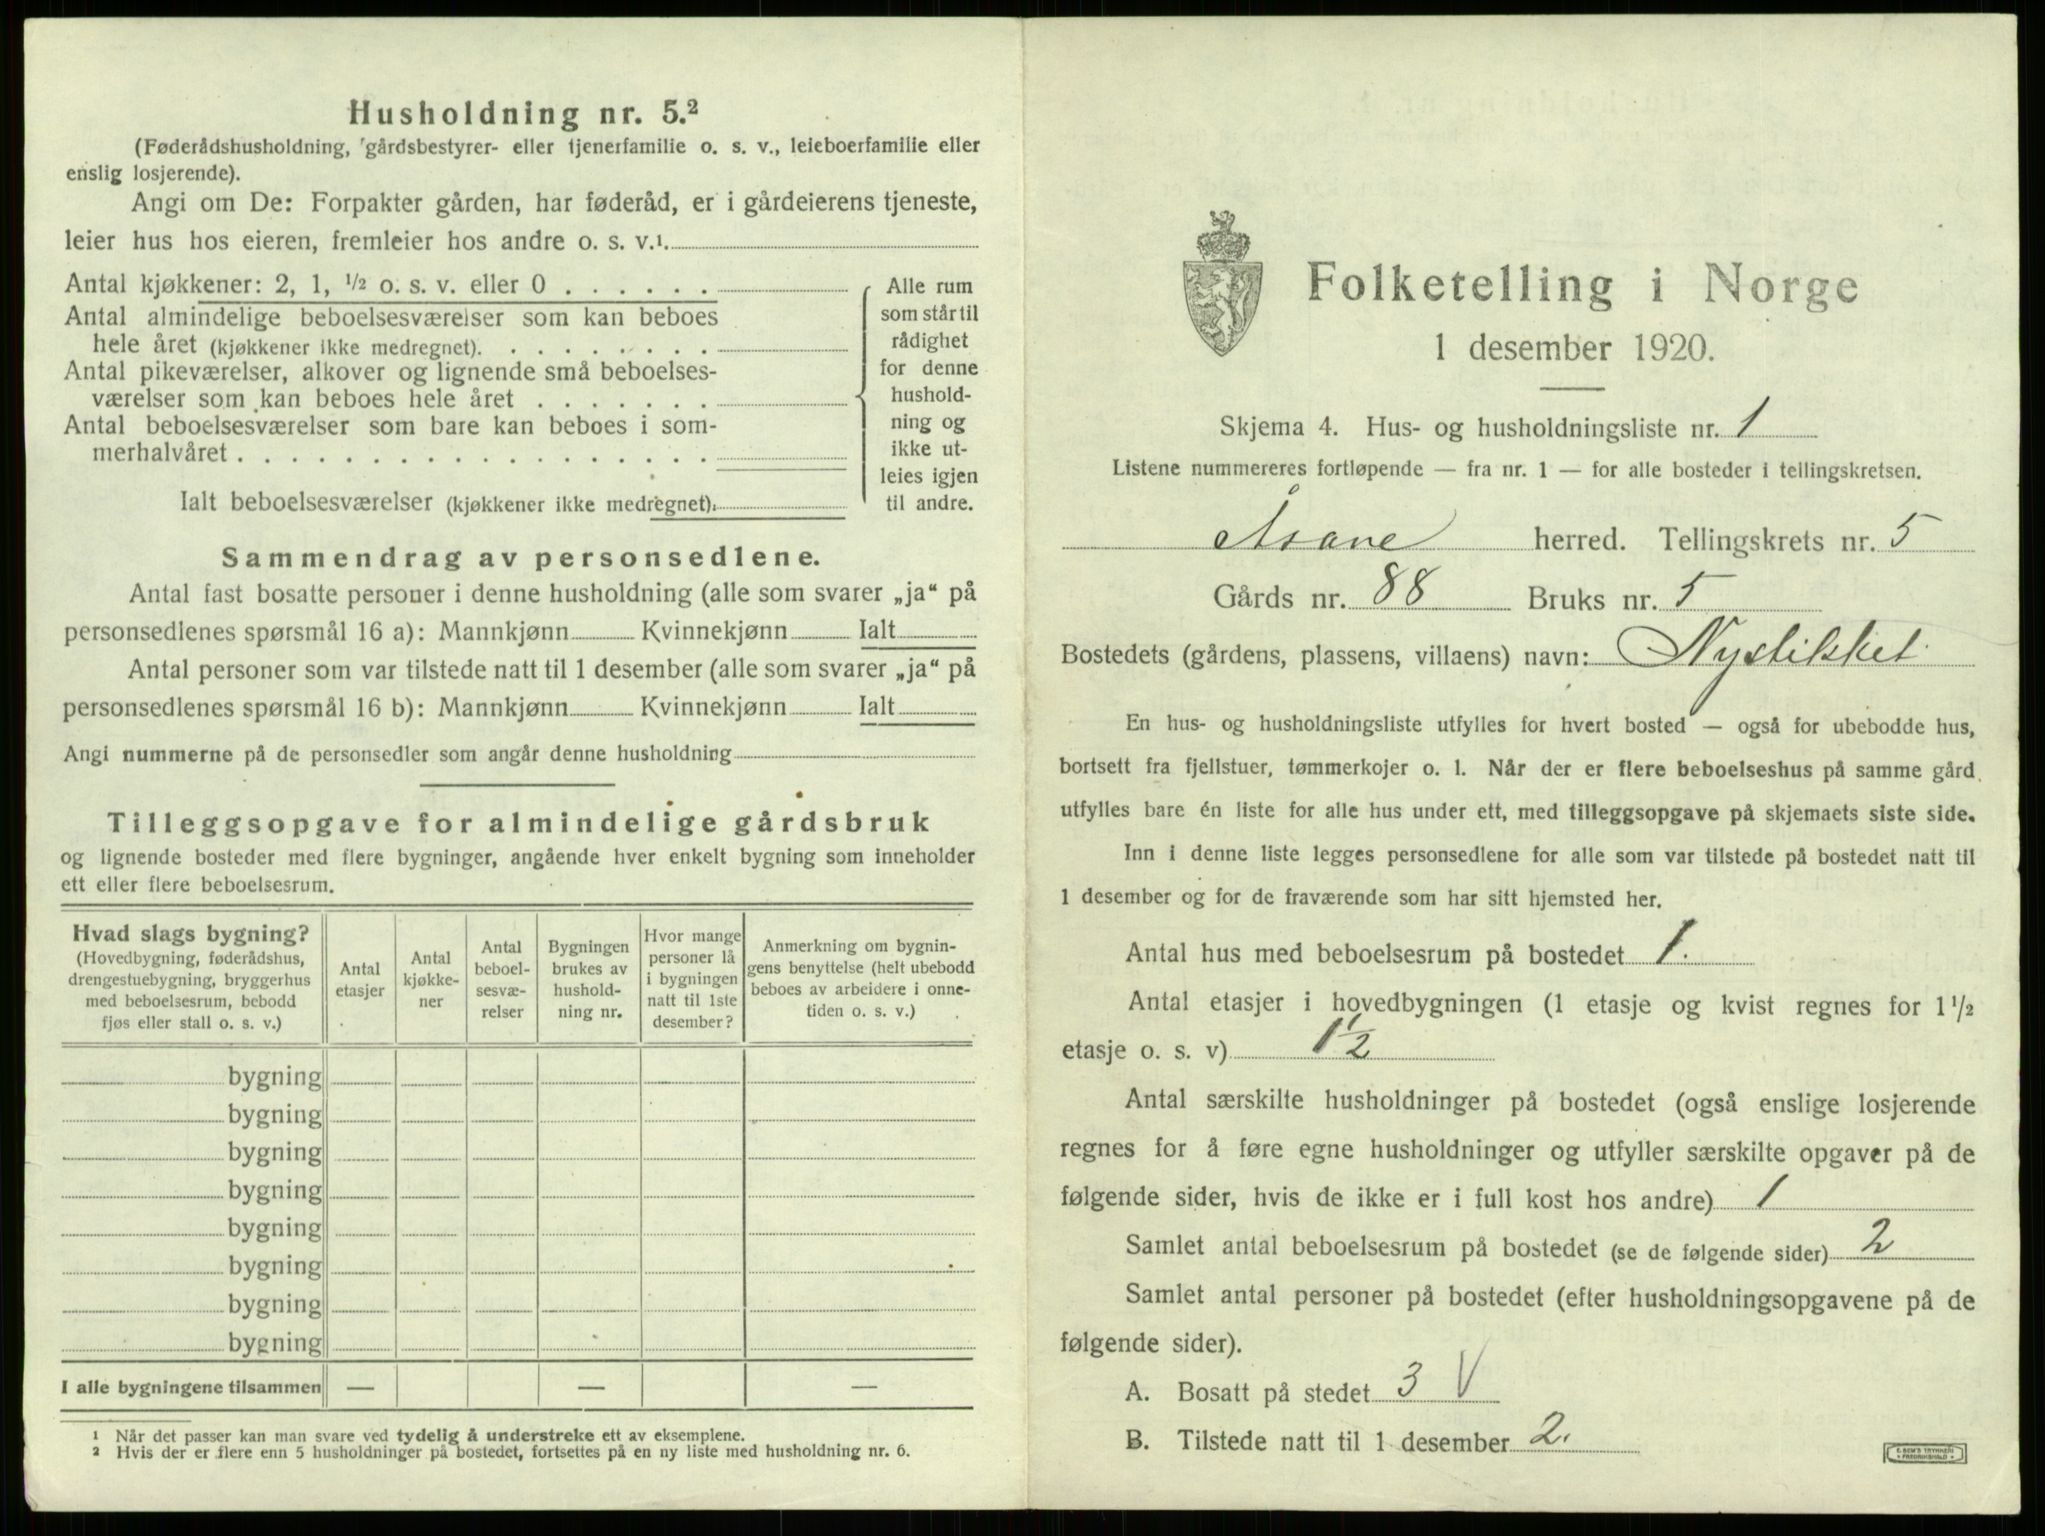 Husholdning nr. 5.²
(Føderådshusholdning, gårdsbestyrer- eller tjenerfamilie o. s. v., leieboerfamilie eller
enslig losjerende).
Angi om De: Forpakter gården, har føderåd, er i gårdeierens tjeneste,
leier hus hos eieren, fremleier hos andre o. s. v.¹.
Antal kjøkkener: 2, 1, ½ o. s. v. eller 0 . . . . . .
Antal almindelige beboelsesværelser som kan beboes
hele året (kjøkkener ikke medregnet). . . . . . . . .
Antal pikeværelser, alkover og lignende små beboelses-
værelser som kan beboes hele året . . . . . . .
Antal beboelsesværelser som bare kan beboes i som-
merhalvåret . . . . . . . . . . . . . . . . . .
Ialt beboelsesværelser (kjøkkener ikke medregnet).
Alle rum
som står til
rådighet
for denne
hushold-
ning og
ikke ut-
leies igjen
til andre.
Sammendrag av personsedlene.
Antal fast bosatte personer i denne husholdning (alle som svarer „ja“ på
personsedlenes spørsmål 16 a): Mannkjønn Kvinnekjønn Ialt
Antal personer som var tilstede natt til 1 desember (alle som svarer „ja“ på
personsedlenes spørsmål 16 b): Mannkjønn Kvinnekjønn Ialt
Angi nummerne på de personsedler som angår denne husholdning
Tilleggsopgave for almindelige gårdsbruk
og lignende bosteder med flere bygninger, angående hver enkelt bygning som inneholder
ett eller flere beboelsesrum.
Hvad slags bygning?
(Hovedbygning, føderådshus,
drengestuebygning, bryggerhus
med beboelsesrum, bebodd
fjøs eller stall o. s. v.)
Antal
etasjer
Antal
kjøkke-
ner
Antal
beboel-
sesvæ-
relser
Bygningen
brukes av
hushold-
ning nr.
Hvor mange
personer lå
i bygningen
natt til 1ste
desember?
Anmerkning om bygnin-
gens benyttelse (helt ubebodd
beboes av arbeidere i onne-
tiden o. s. v.)
bygning
bygning
bygning
bygning
bygning
bygning
bygning
bygning
I alle bygningene tilsammen — — —
¹ Når det passer kan man svare ved tydelig å understreke ett av eksemplene.
² Hvis der er flere enn 5 husholdninger på bostedet, fortsettes på en ny liste med husholdning nr. 6.
Folketelling i Norge
1 desember 1920.
Skjema 4. Hus- og husholdningsliste nr. 1
Listene nummereres fortløpende — fra nr. 1 — for alle bosteder i tellingskretsen.
Åsane herred. Tellingskrets nr. 5
Gårds nr. 88 Bruks nr. 5
Bostedets (gårdens, plassens, villaens) navn: Nystikket
En hus- og husholdningsliste utfylles for hvert bosted — også for ubebodde hus,
bortsett fra fjellstuer, tømmerkojer o. l. Når der er flere beboelseshus på samme gård
utfylles bare én liste for alle hus under ett, med tilleggsopgave på skjemaets siste side.
Inn i denne liste legges personsedlene for alle som var tilstede på bostedet natt til
1 desember og for de fraværende som har sitt hjemsted her.
Antal hus med beboelsesrum på bostedet 1.
Antal etasjer i hovedbygningen (1 etasje og kvist regnes for 1½
etasje o. s. v) 1½
Antal særskilte husholdninger på bostedet (også enslige losjerende
regnes for å føre egne husholdninger og utfyller særskilte opgaver på de
følgende sider, hvis de ikke er i full kost hos andre) 1
Samlet antal beboelsesrum på bostedet (se de følgende sider) 2
Samlet antal personer på bostedet (efter husholdningsopgavene på de
følgende sider).
A. Bosatt på stedet 3 V
B. Tilstede natt til 1 desember 2.